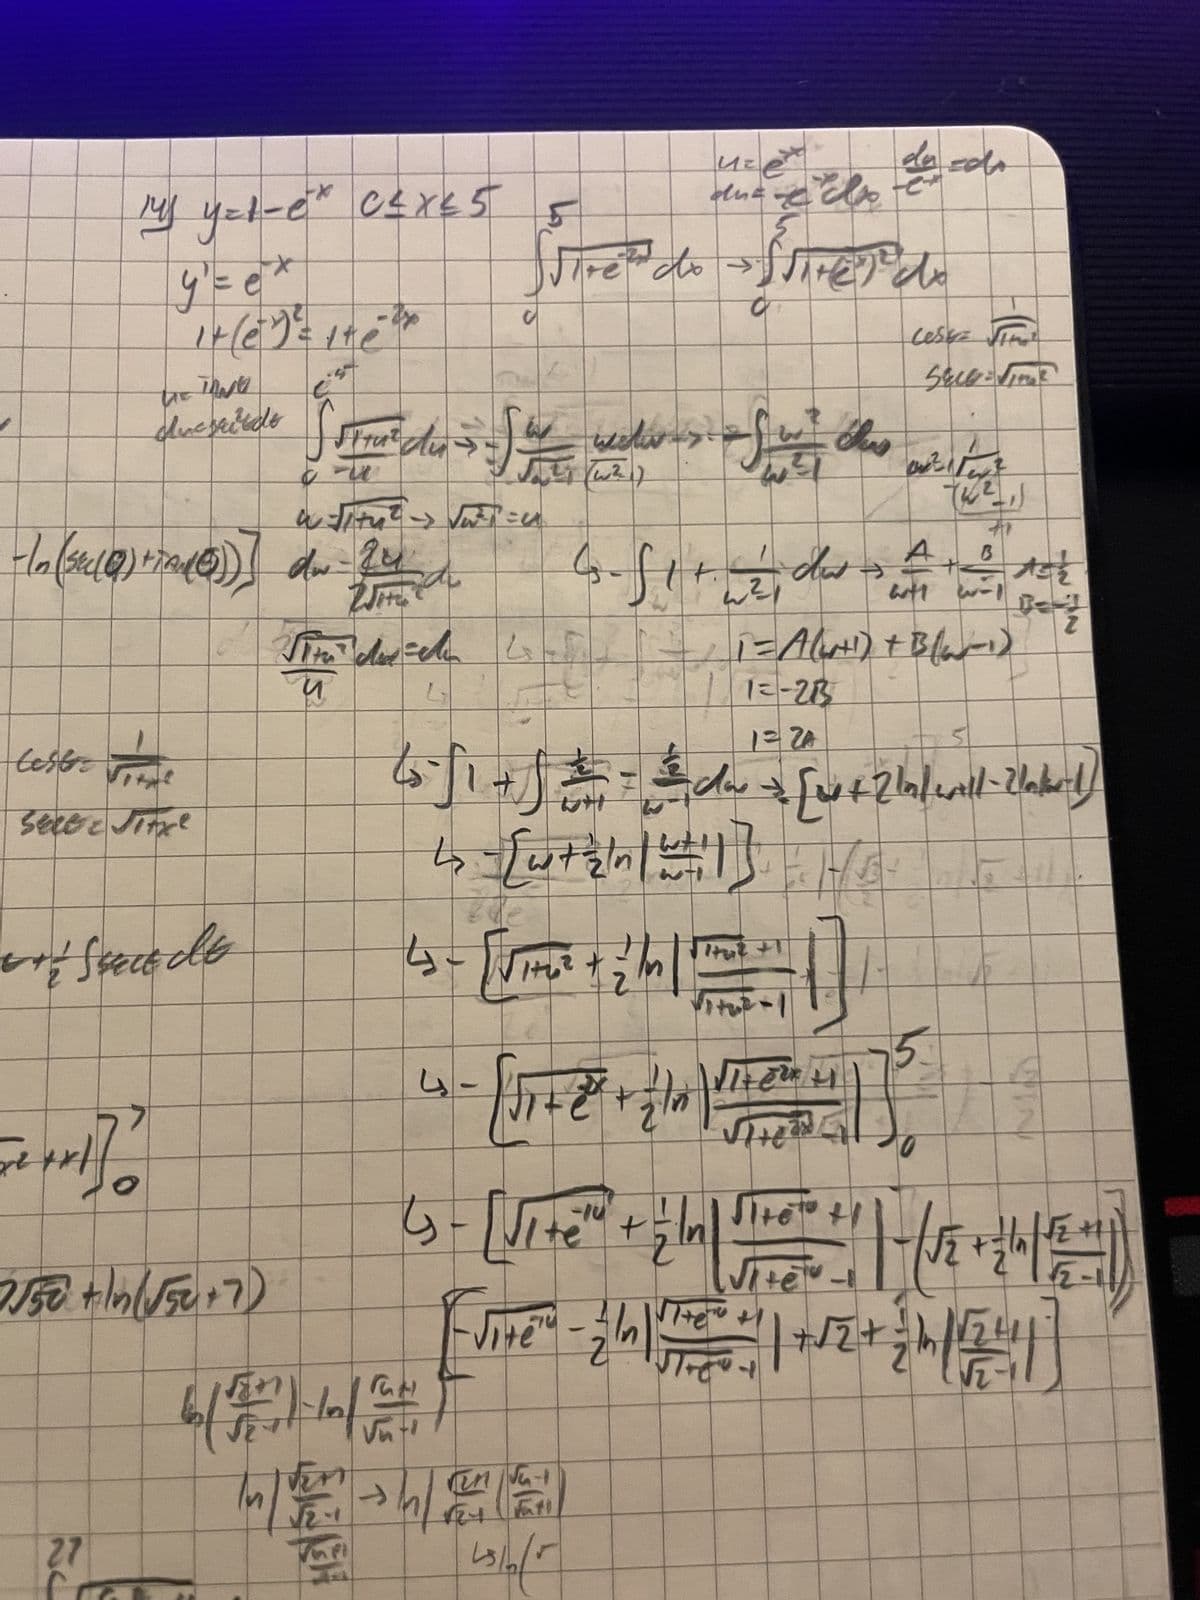 14) y=1-e^-x 0≤x≤5
y'=e^-x
1+(e^-x)²=1+e^-2x
∫₀⁵ √(1+e^-2x) dx → ∫₀⁵ √(1+(e^-x)²) dx
u=e^-x
du=-e^-x dx
du/-e^-x = dx
cosθ = 1/√(1+u²)
secθ=√(1+u²)
u=Tanθ
du=sec²θdθ
∫ √(1+u²)/-u du → -∫ w/√(w²-1) wdw/√(w²-1) → -∫ w²/(w²-1) dw
w=√(1+u²) → √(w²-1)=u
-ln(sec(θ)+Tan(θ))]
dw=2u/(2√(1+u²)) du
↳ -∫ 1 + 1/(w²-1) dw → A/(w+1) + B/(w-1) A=1/2
B=-1/2
√(1+u²)/u dw=du
1=A(w+1)+B(w-1)
1=-2B
1=2A
cosθ= 1/√(1+x²)
secθ=√(1+x²)
↳ -∫1+∫ (1/2)/(w+1) - (1/2)/(w-1) dw → -[w+2ln|w+1|-2ln|w-1|]
↳ -[w+1/2 ln|(w+1)/(w-1)|]
+1/2 ∫secθ dθ
↳ -[√(1+u²) + 1/2 ln|(√(1+u²)+1)/(√(1+u²)-1)|]
↳ -[√(1+e^-2x) + 1/2 ln|(√(1+e^-2x)+1)/(√(1+e^-2x)-1)|]₀⁵
+x|]₀⁷
↳ -[√(1+e^-10) + 1/2 ln|(√(1+e^-10)+1)/(√(1+e^-10)-1)| -(√2+1/2 ln|(√2+1)/(√2-1)|)]
7√50 +ln(√50+7)
[-√(1+e^-10) - 1/2 ln|(√(1+e^-10)+1)/(√(1+e^-10)-1)| +√2+ 1/2 ln|(√2+1)/(√2-1)|]
ln|(√2+1)/(√2-1)|-ln|(√u+1)/(√u-1)|
ln|(√2+1)/(√2-1) → ln|(√2+1)/(√2-1) ((√u-1)/(√u+1))|
↳ ln(√
27